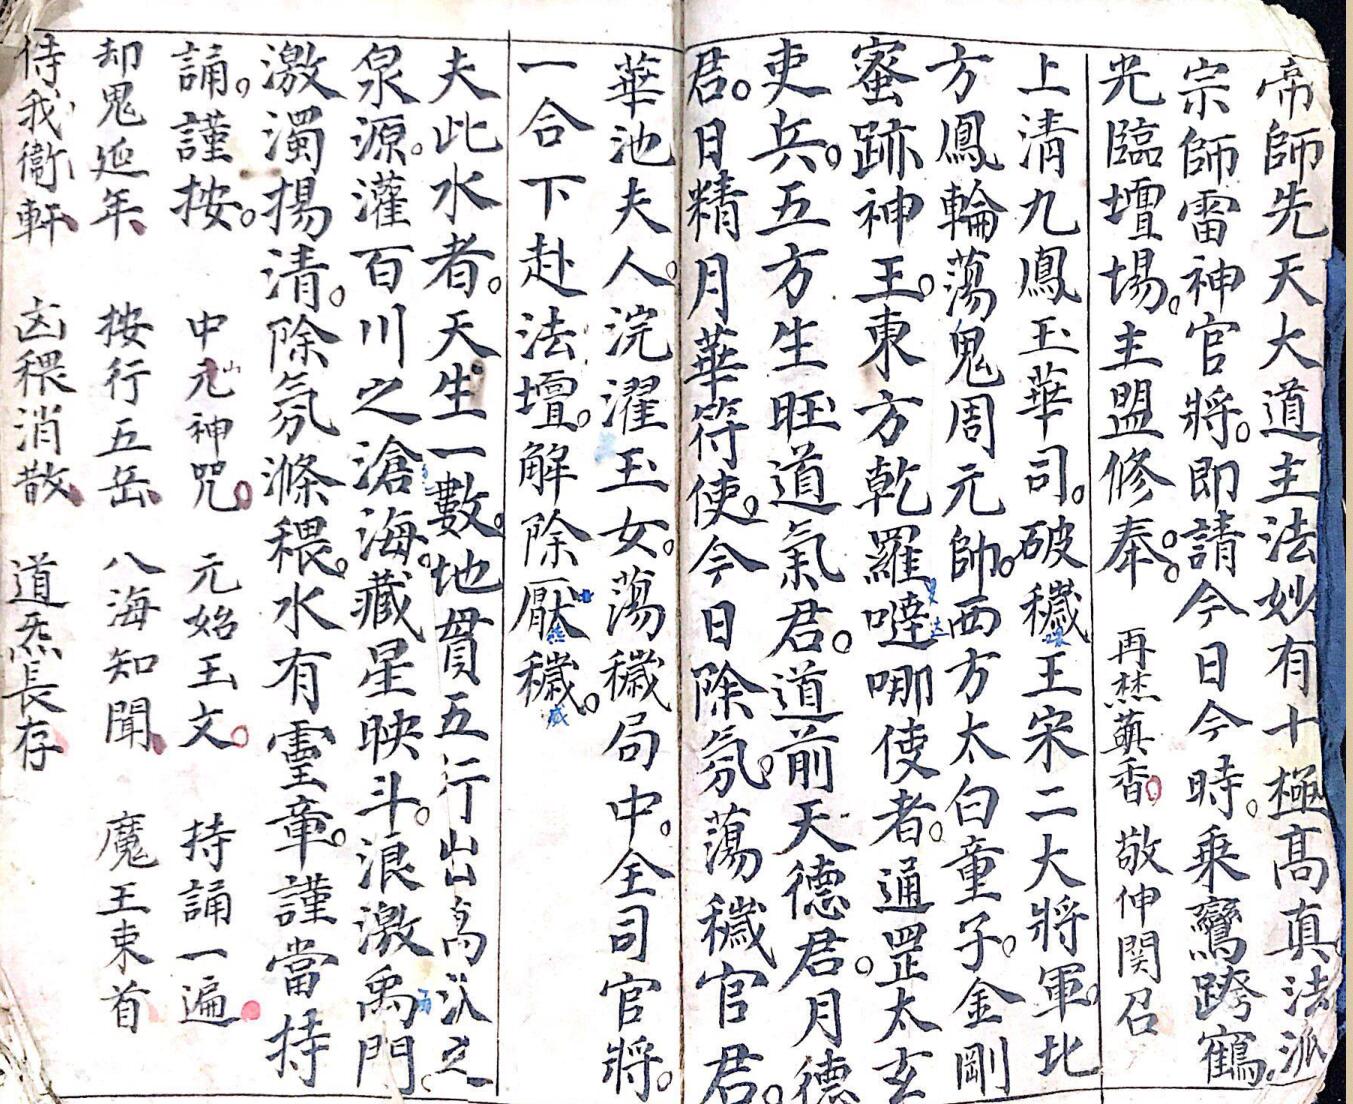 帝師先天大道主法妙有十極高真法派
宗師雷神官將。即請今日今時。乘鸞跨鶴。
光臨壇場。主盟修奉。再焚蓂香。敬伸関召
上清九鳳玉華司。破穢王宋二大將軍。北
方鳳輪蕩鬼周元帥。西方太白童子。金剛
蜜跡神王。東方乾羅噠哪使者。通罡太玄
吏兵。五方生旺道氣君。道前天德君。月德
君。日精月華符使。今日除氛。蕩穢官君。
華池夫人。浣濯玉女。蕩穢局中。全司官將。
一合下赴法壇。解除厭穢。
夫此水者。天生一數。地貫五行出出高汃之
泉源。灌百川之滄海。藏星映斗。浪激禹門
激濁揚清。除氛滌穢。水有靈章。謹當持
誦。謹按。 中元神咒。 元始玉文。 持誦一遍。
却鬼延年 按行五岳 八海知聞 魔王束首
侍我衛軒 凶穢消散 道炁長存